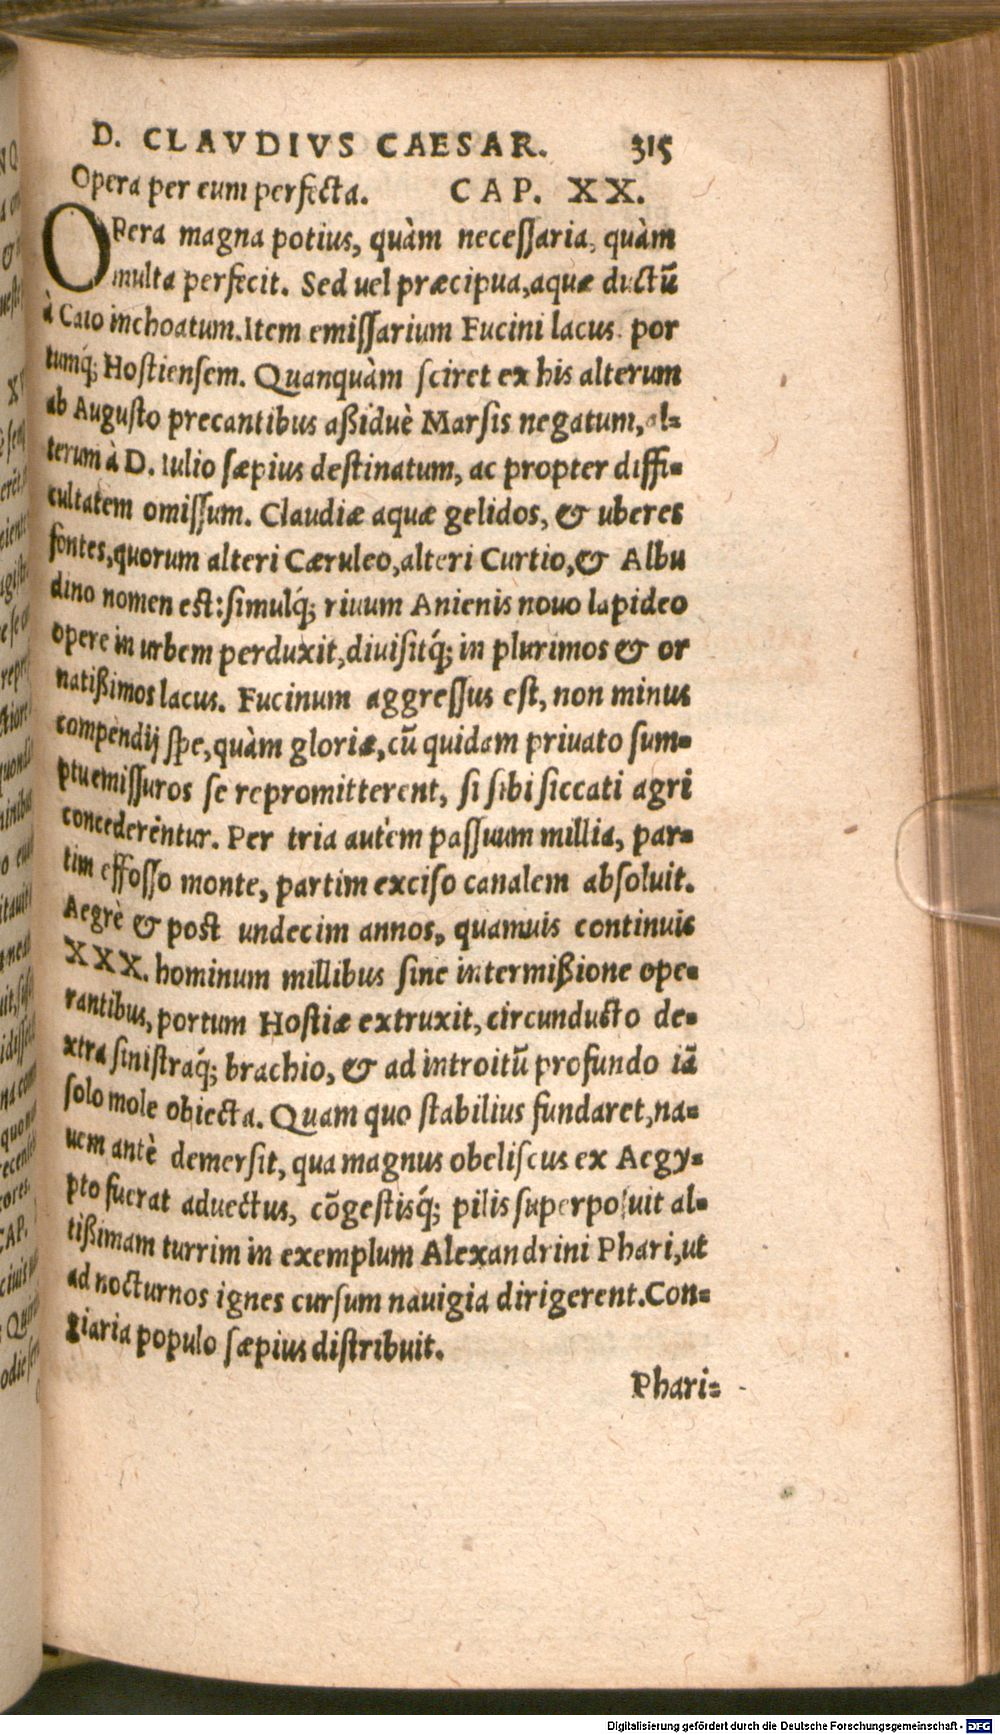 D. CLAVDIVS CAESAR. 315
Opera per eum perfecta. CAP. XX.
OPera magna potius, quàm necessaria, quàm
multa perfecit. Sed uel præcipua, aquæ ductũ
à Caio inchoatum. Item emissarium Fucini lacus por
tumq́; Hostiensem. Quanquàm sciret ex his alterum
ab Augusto precantibus aßiduè Marsis negatum, al-
terum à D. Iulio sæpius destinatum, ac propter diffi-
cultatem omissum. Claudiæ aquæ gelidos, & uberes
fontes, quorum alteri Cæruleo, alteri Curtio, & Albu
dino nomen est: simulq́; riuum Anienis nouo lapideo
opere in urbem perduxit, diuisitq́; in plurimos & or
natißimos lacus. Fucinum aggressus est, non minus
compendij spe, quàm gloriæ, cũ quidam priuato sum-
ptu emissuros se repromitterent, si sibi siccati agri
concederentur. Per tria autèm passuum millia, par-
tim effosso monte, partim exciso canalem absoluit.
Aegrè & post undecim annos, quamuis continuis
XXX. hominum millibus sine intermißione ope-
rantibus, portum Hostiæ extruxit, circunducto de-
xtra sinistraq́; brachio, & ad introitũ profundo iã
solo mole obiecta. Quam quo stabilius fundaret, na-
uem antè demersit, qua magnus obeliscus ex Aegy-
pto fuerat aduectus, cõgestisq́; pilis superposuit al-
tißimam turrim in exemplum Alexandrini Phari, ut
ad nocturnos ignes cursum nauigia dirigerent. Con-
giaria populo sæpius distribuit.
Phari-
Digitalisierung gefördert durch die Deutsche Forschungsgemeinschaft - DFG